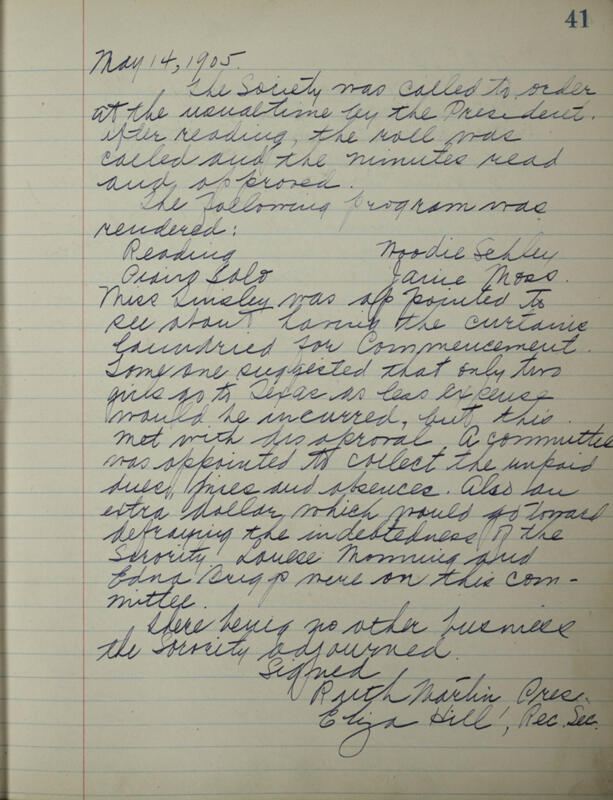 41
May 14, 1905.
The Society was called to order
at the usual time by the President.
After reading, the roll was
called and the minutes read
and approved.
The following program was
rendered:
Reading Woodie Schley
Piano Solo Janie Moss.
Miss Linsley was appointed to
see about having the curtains
laundried for Commencement.
Some one suggested that only two
girls go to Texas as less expense
would be incurred, but this
met with disaproval. A committee
was appointed to collect the unpaid
dues, fines and absences. Also an
extra dollar, which would go toward
defraying the indebtedness of the
Sorority. Louise Monning and
Edna Briggs were on this com-
mittee.
There being no other business
the Sorority adjourned.
Signed
Ruth Martin Pres.
Eliza Hill, Rec. Sec.